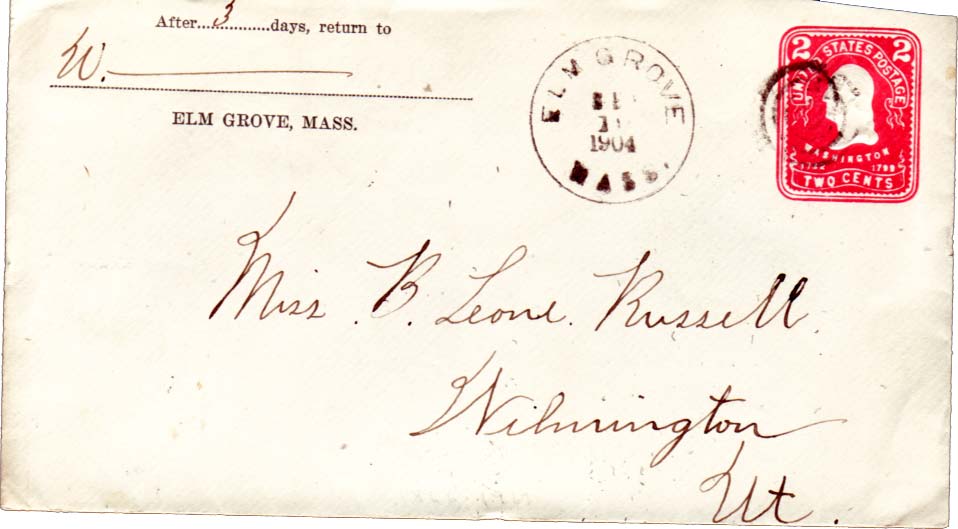 After....3...............days, return to
W.
ELM GROVE, MASS.
ELM GROVE
1904
MASS.
2 2
UNITED STATES POSTAGE
WASHINGTON
1799
TWO CENTS
Miss. B. Leone. Russell.
Wilmington
Vt.